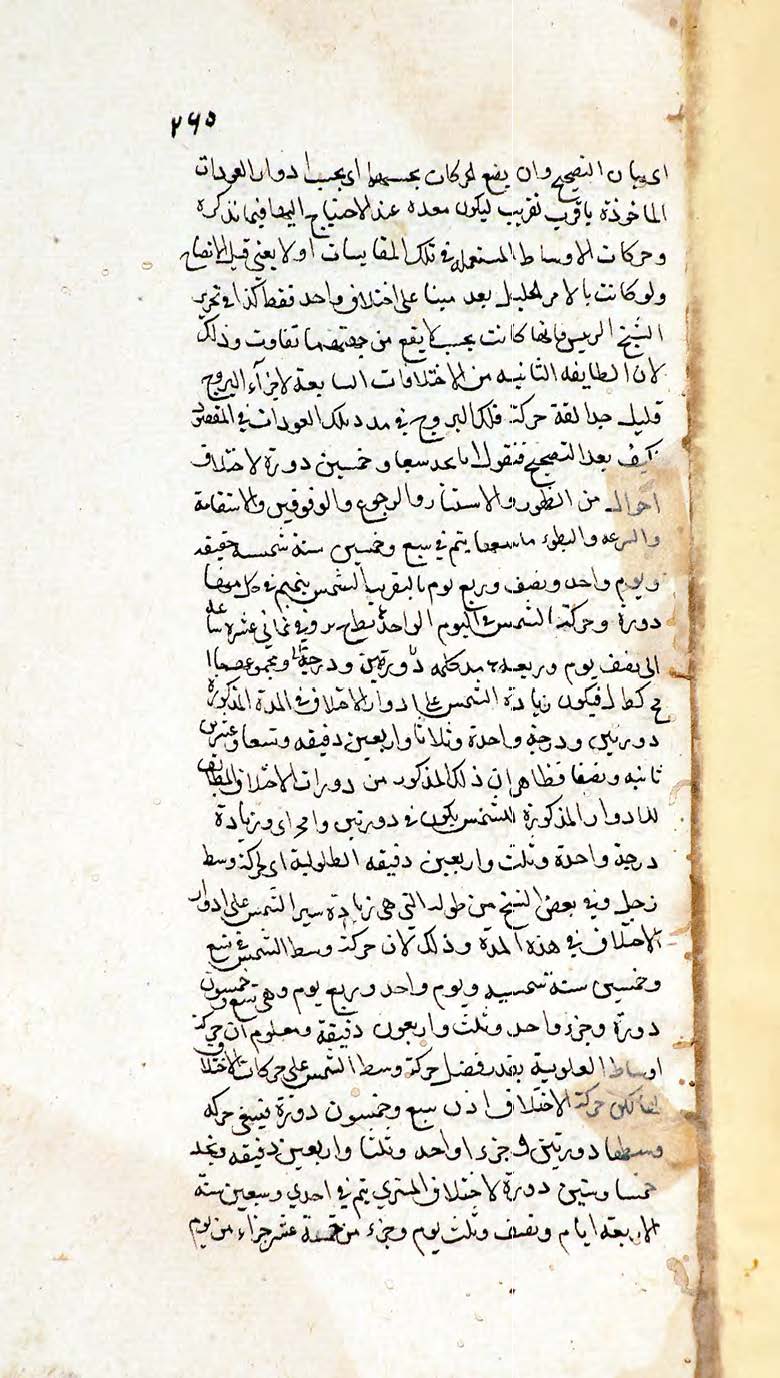 ٢٦٥
اى بيان التصحيح وان يضع الحركات بحسبها اى بحسب ادوار العودات
الماخوذة باقرب تقريب ليكون معده عند الاحتياج اليها فيما نذكره
وحركات الاوساط المستعمله فى تلك المقايسات اولا يعنى قبل الايضاح
ولو كانت بالامر الجليل بعد مبنيا على اختلاف واحد فقط كذا فى تحرير
الشيخ الريس فانها كانت بحسب لا يقع من جهتهما تفاوت وذلك
لان الطايفه الثانيه من الاختلافات التابعة لاجزآء البروج
قليله جدا لقة حركة فلك البروج فى مدد تلك العودات فى المقصود
كيف بعد التصحيح فنقول انا نجد سبعا وخمسين دورة لاختلاف
احواله من الظهور والاستتار والرجوع والوقوفين والاستقامة
والسرعه والبطوء يتم فى سبع وخمسين سنة شمسيه حقيقه
ويوم واحد ونصف وربع يوم بالتقريب الشمس يتمم فى كل منها
دورة وحركة الشمس فى اليوم الواحد وفى ثمانى عشره ساعه
اى نصف يوم وربعه دورتين ودرجة ومجموعهما ا
مح كط ل فيكون زيادة الشمس على ادوار الاختلاف فى المدة المذكورة
دورتين ودرجة واحدة وثلاثا واربعين دقيقه وتسعا وعشرين
ثانيه ونصفا فظاهر ان ذلك المذكور من دورات الاختلاف المطابق
للادوار المذكورة للشمس يكون فى دورتين واجزاى وزيادة
درجة واحدة وثلث واربعين دقيقه الطلولية اى لحركة وسط
زحل وفى بعض النسخ من طوله التى هى زيادة سير الشمس على ادوار
الاختلاف فى هذه المدة وذلك لان حركة وسط الشمس فى تسع
وخمسين سنة شمسيه ويوم واحد وربع يوم وهى تسع وخمسون
دورة وجزء واحد وثلث واربعون دقيقة ومعلوم ان حركة
اوساط العلوية بقدر فضل حركة وسط الشمس على حركات الاختلاف
لها لكن حركة الاختلاف اذن سبع وخمسون دورة فيبقى حركه
وسطها دورتين وجزءا واحدا وثلثا واربعين دقيقه ونجد
خمسا وستين دورة لاختلاف المشترى يتم فى احدى وسبعين سنه
الا اربعة ايام ونصف وثلث يوم وجزء من خمسة عشر جزاء من يوم